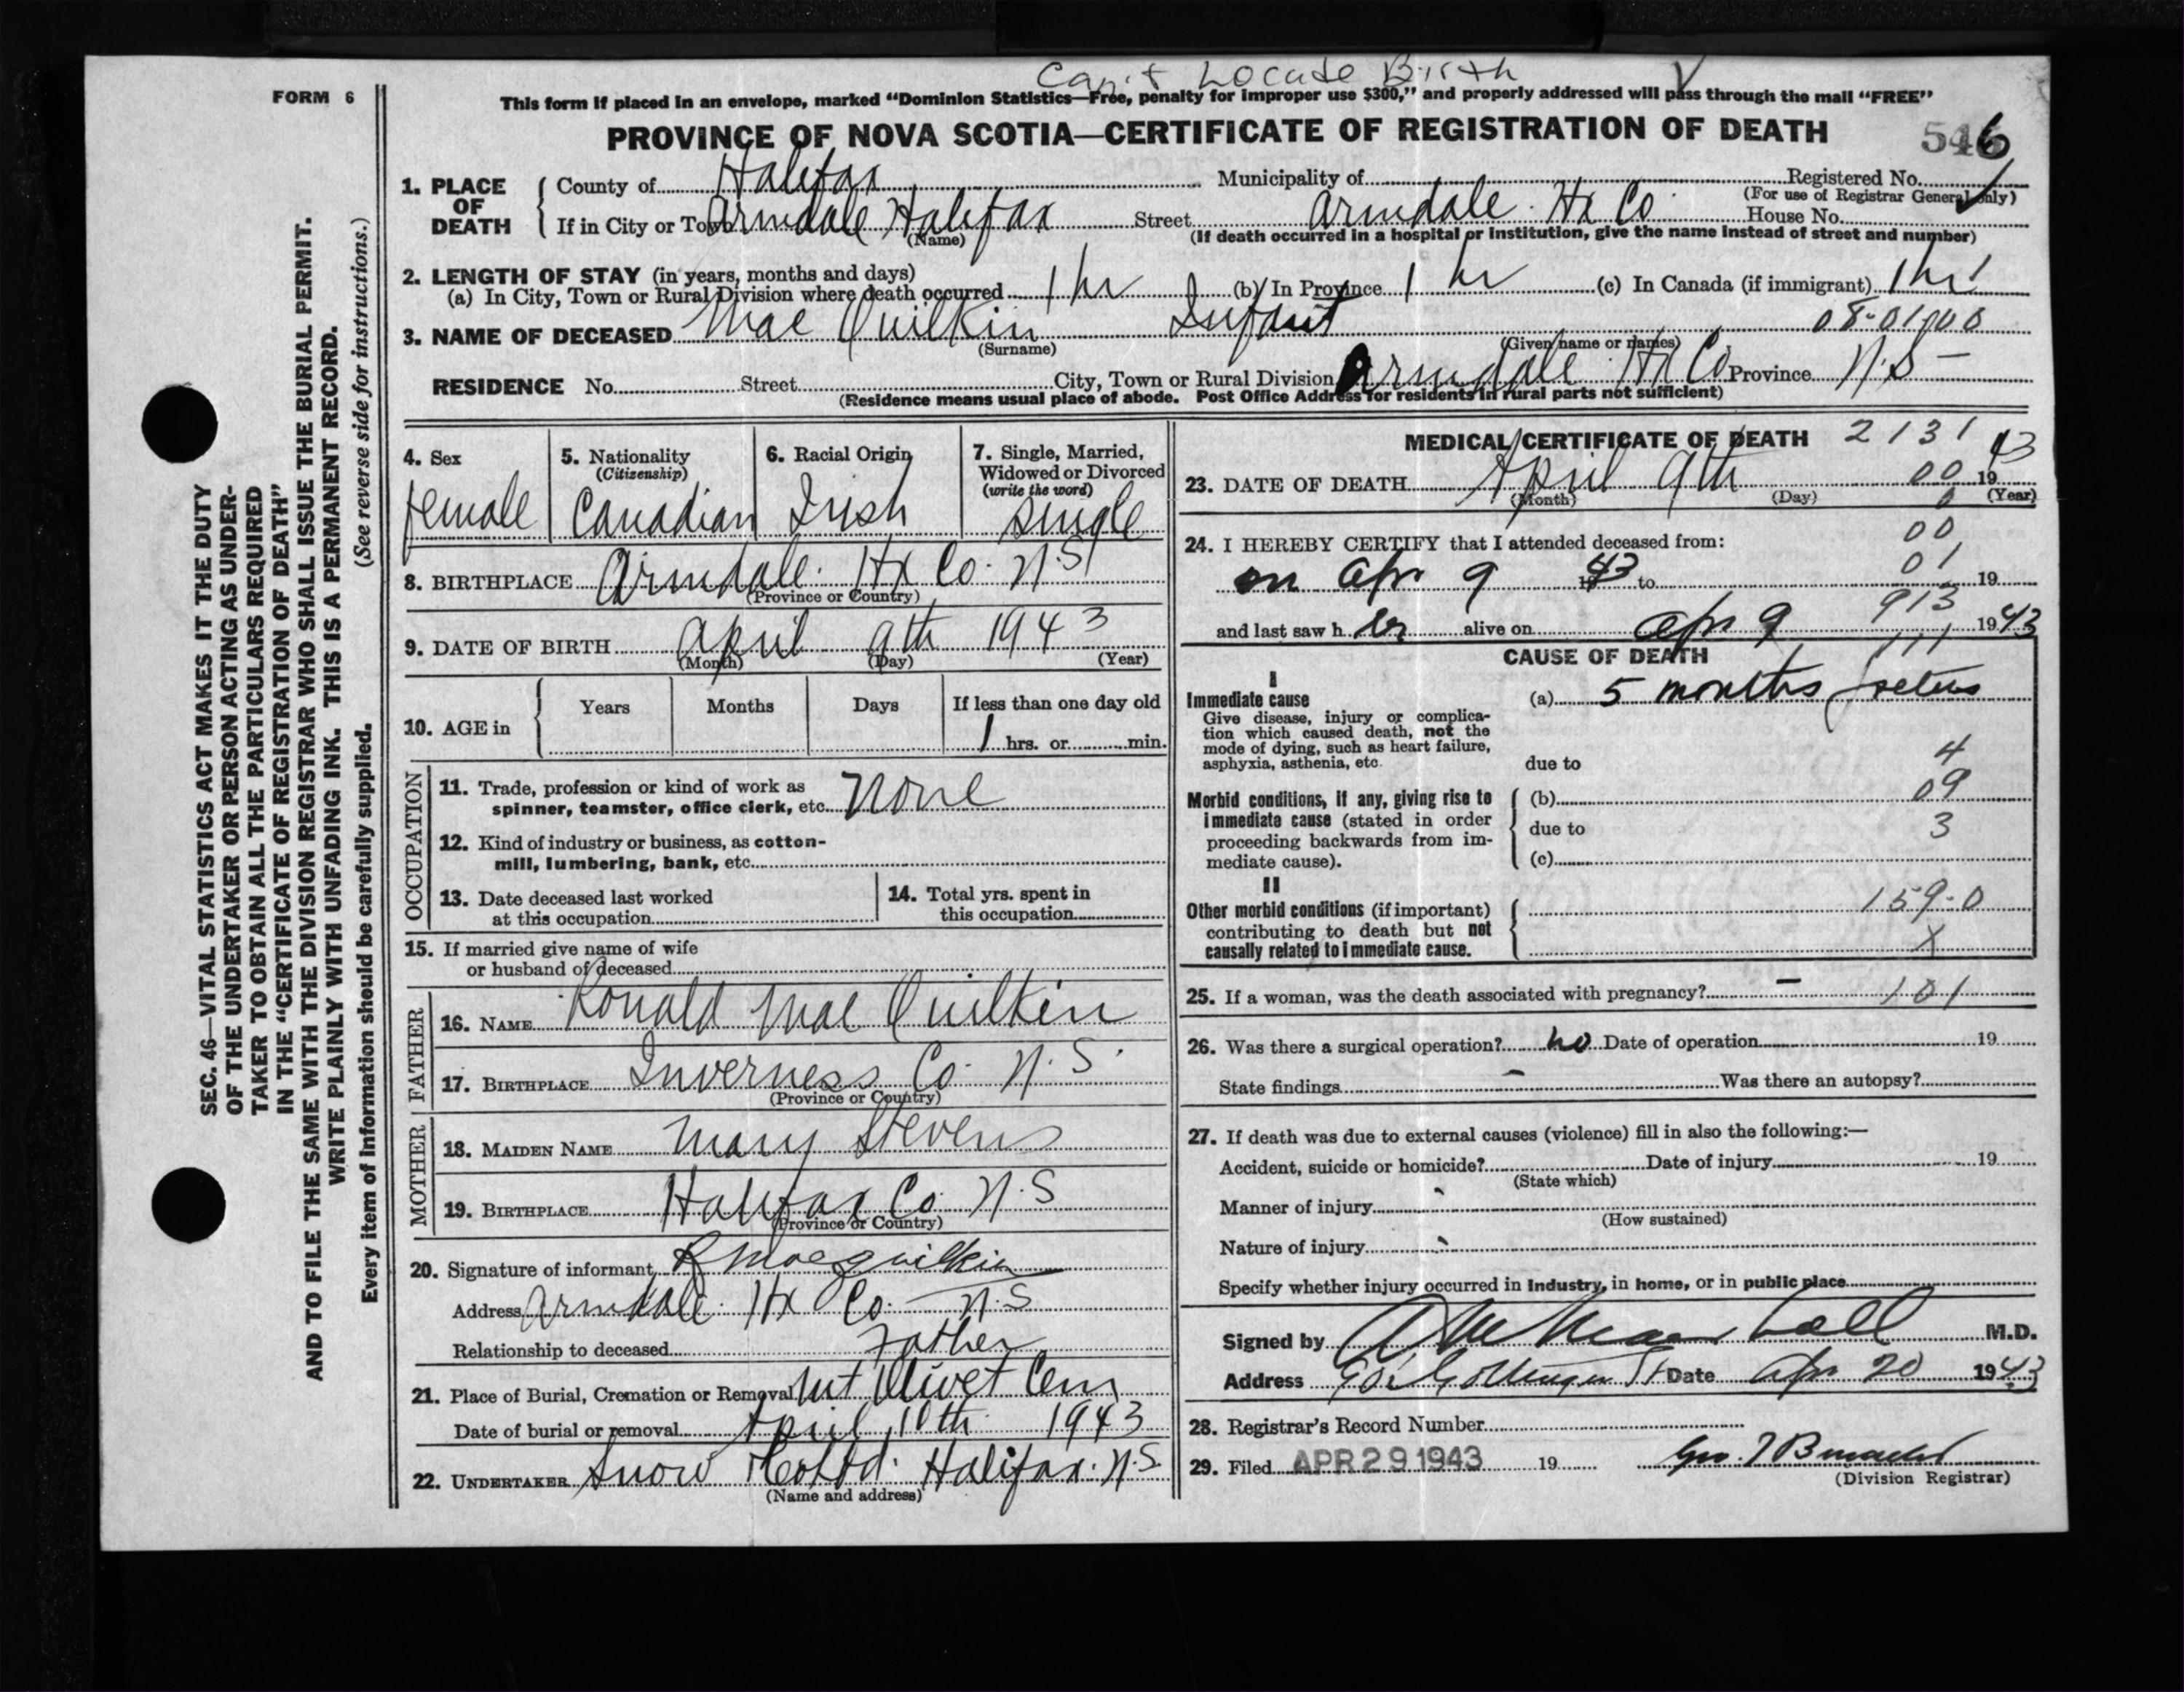 Can't Locate Birth
FORM 6
This form if placed in an envelope, marked “Dominion Statistics—Free, penalty for improper use $300,” and properly addressed will pass through the mail “FREE”
PROVINCE OF NOVA SCOTIA—CERTIFICATE OF REGISTRATION OF DEATH 546
1. PLACE OF DEATH
County of Halifax Municipality of Registered No.
(For use of Registrar General only)
If in City or Town Armdale Halifax Street Armdale. Hx Co House No.
(Name) (If death occurred in a hospital or institution, give the name instead of street and number)
2. LENGTH OF STAY (in years, months and days)
(a) In City, Town or Rural Division where death occurred 1 hr (b) In Province 1 hr (c) In Canada (if immigrant) 1 hr
08-01000
3. NAME OF DECEASED Mac Quilkin Infant
(Surname) (Given name or names)
RESIDENCE No. Street City, Town or Rural Division Armdale Hx Co Province N.S –
(Residence means usual place of abode. Post Office Address for residents in rural parts not sufficient)
4. Sex
female
5. Nationality
(Citizenship)
Canadian
6. Racial Origin
Irish
7. Single, Married,
Widowed or Divorced
(write the word)
single
8. BIRTHPLACE Armdale. Hx Co. N.S
(Province or Country)
9. DATE OF BIRTH April 9th 1943
(Month) (Day) (Year)
10. AGE in Years Months Days If less than one day old
1 hrs. or min.
OCCUPATION
11. Trade, profession or kind of work as
spinner, teamster, office clerk, etc. None
12. Kind of industry or business, as cotton-
mill, lumbering, bank, etc.
13. Date deceased last worked
at this occupation
14. Total yrs. spent in
this occupation
15. If married give name of wife
or husband of deceased
FATHER
16. NAME Ronald Mac Quilkin
17. BIRTHPLACE Inverness Co. N.S.
(Province or Country)
MOTHER
18. MAIDEN NAME Mary Stevens
19. BIRTHPLACE Halifax Co. N.S
(Province or Country)
20. Signature of informant R Macquilkin
Address Armdale. Hx Co. N.S
Relationship to deceased Father
21. Place of Burial, Cremation or Removal Mt Olivet Cem
Date of burial or removal April 10th 1943
22. UNDERTAKER Snow & Co Ltd. Halifax. N.S
(Name and address)
MEDICAL CERTIFICATE OF DEATH 2131
23. DATE OF DEATH April 9th 00 1943
(Month) (Day) (Year)
0
00
24. I HEREBY CERTIFY that I attended deceased from:
01
on Apr 9 1943 to 19
913
and last saw her alive on Apr 9 1943
111
CAUSE OF DEATH
I
Immediate cause (a) 5 months foetus
Give disease, injury or complica-
tion which caused death, not the
mode of dying, such as heart failure,
asphyxia, asthenia, etc. due to 4
Morbid conditions, if any, giving rise to (b) 09
immediate cause (stated in order due to 3
proceeding backwards from im-
mediate cause). (c)
II
Other morbid conditions (if important) 159-0
contributing to death but not
causally related to immediate cause. X
25. If a woman, was the death associated with pregnancy? – 101
26. Was there a surgical operation? no Date of operation 19
State findings – Was there an autopsy?
27. If death was due to external causes (violence) fill in also the following:—
Accident, suicide or homicide? Date of injury 19
(State which)
Manner of injury
(How sustained)
Nature of injury
Specify whether injury occurred in industry, in home, or in public place
Signed by M.D.
Address Gottingen St Date Apr 20 1943
28. Registrar's Record Number
29. Filed APR 29 1943 19
(Division Registrar)
SEC. 46—VITAL STATISTICS ACT MAKES IT THE DUTY
OF THE UNDERTAKER OR PERSON ACTING AS UNDER-
TAKER TO OBTAIN ALL THE PARTICULARS REQUIRED
IN THE “CERTIFICATE OF REGISTRATION OF DEATH”
AND TO FILE THE SAME WITH THE DIVISION REGISTRAR WHO SHALL ISSUE THE BURIAL PERMIT.
WRITE PLAINLY WITH UNFADING INK. THIS IS A PERMANENT RECORD.
Every item of information should be carefully supplied. (See reverse side for instructions.)